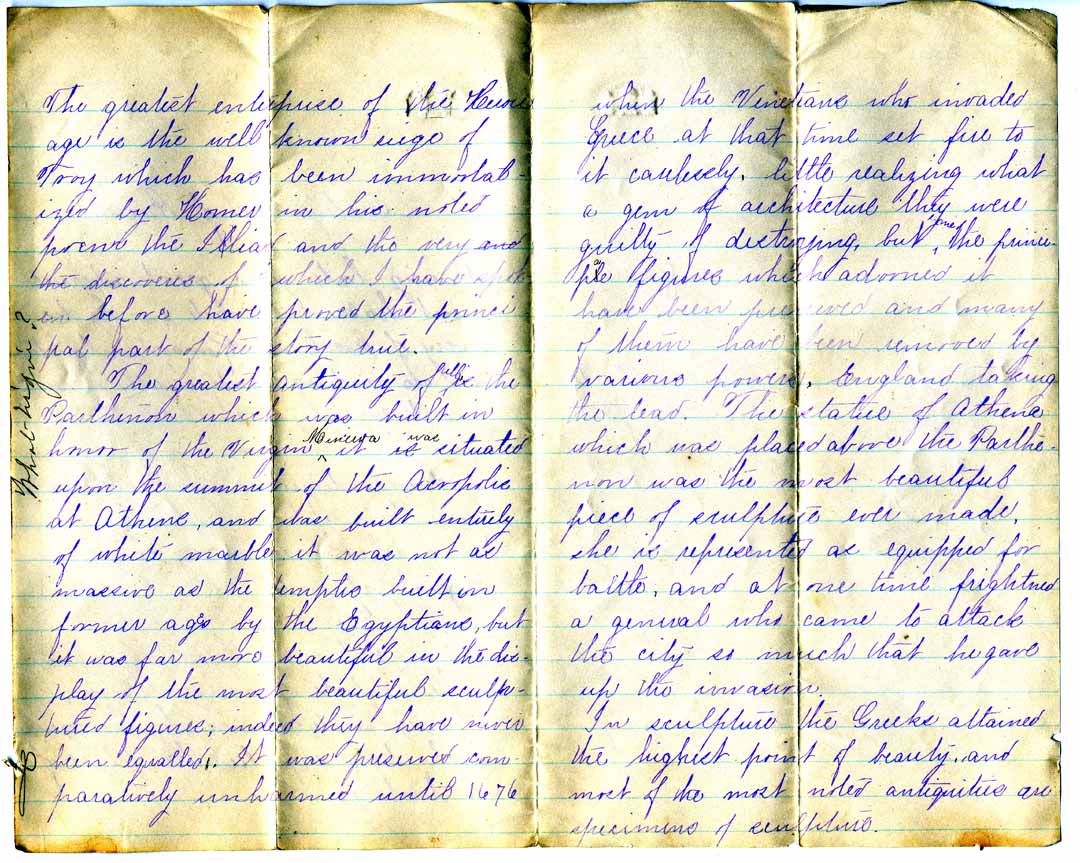 The greatest enterprise of the Heroic
age is the well known siege of
Troy which has been immortal-
ized by Homer in his noted
poem the Illiad and the very and
the discoveries of which I have spok
en before have proved the princi
pal part of the story true.
The greatest antiquity of all is the
Parthenon which was built in
honor of the Virgin Minerva it is was situated
upon the summit of the Acropolis
at Athens, and was built entirely
of white marble it was not as
massive as the temples built in
former ages by the Egyptians, but
it was far more beautiful in the dis-
play of the most beautiful sculp-
tured figures; indeed they have never
been equalled. It was preserved com-
paratively unharmed until 1676
What-higin?
when the Venetians who invaded
Greece at that time set fire to
it carelessly, little realizing what
a gem of architecture they were
guilty of destroying, but the prince-
pal figures which adorned it
have been preserved and many
of them have been removed by
various powers, England taking
the lead. The statue of Athena
which was placed above the Parthe-
non was the most beautiful
piece of sculpture ever made,
she is represented as equipped for
battle, and at one time frightned
a general who came to attack
the city so much that he gave
up the invasion.
In sculpture the Greeks attained
the highest point of beauty, and
most of the most noted antiquities are
specimens of sculpture.